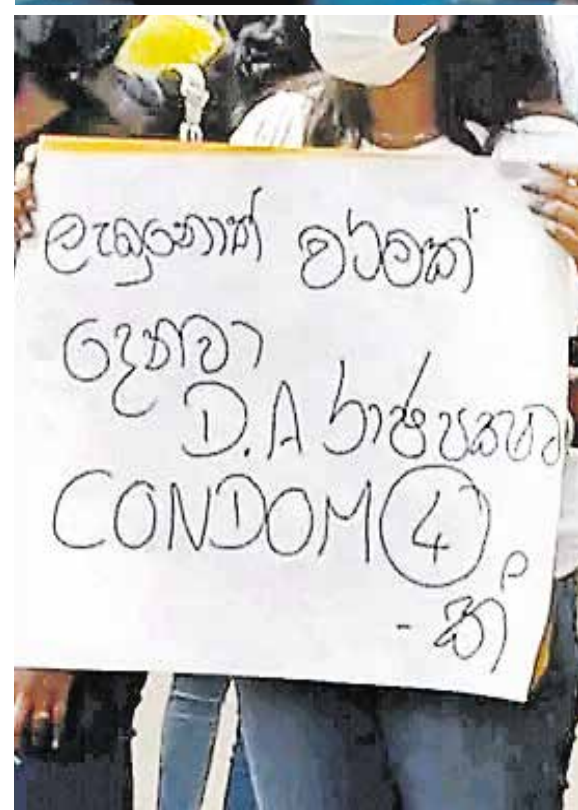 ලැබුනොත් වරමක්
දෙනවා
D.A රාජපක්ෂට
CONDOM 4
-ක්